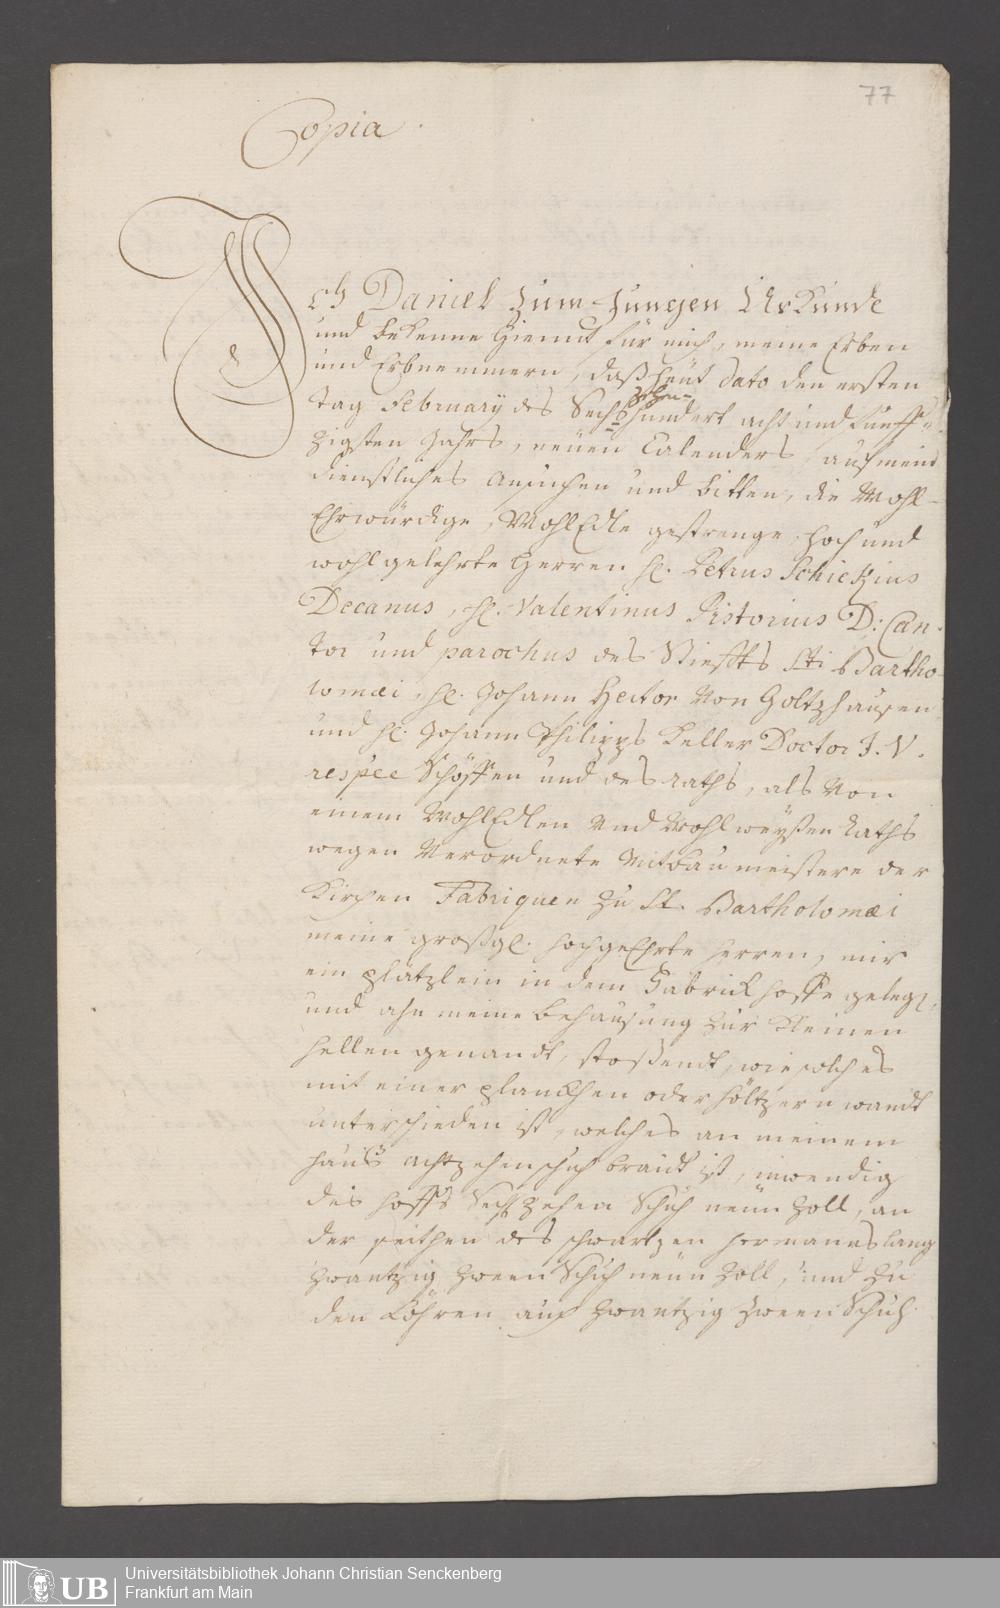 77
Copia
Ich Daniel zum Jungen Urkunde
und bekenne hiemit für mich, meine Erben
und Erbnemmern, daß heut dato den ersten
Tag February des Sechszehenhundert acht und fünff-
zigsten Jahrs, neuen Calenders, auf mein
dienstliches Ansuchen und bitten, die Wohl-
Ehrwürdige, WohlEdle gestrenge, hoch und
wohl gelehrte Herren H. Petrus Schickzius
Decanus, H. Valentinus Pistorius D: Can-
tor und parochus des Stieffts Sti Bartho-
lomæi, H. Johann Hector von Holtzhausen
und H. Johann Philipps Keller Doctor J. V.
respče Schöffen und des raths, als von
einem WohlEdlen und Wohlweyßen Raths
wegen Verordnete Mitbaumeistere der
Kirchen Fabriquen zu St. Bartholomæi
meine großgl. hochgeEhrte Herren, mir
ein plätzlein in dem Fabrick hoffe gelegn,
und ahn meine behausung zur Kleinen
hellen genandt, stoßendt, wie solches
mit einer planckhen oder höltzern wandt
unterschieden ist, welches an meinem
hauß achtzehen schuh braidt ist, inwendig
des hoffs Sechzehen Schuh neun Zoll, an
der seithen des schwartzen hermanns lang
zwantzig zween Schuh neun Zoll, und zu
den Röhren auch zwantzig zween Schuh
UB
Universitätsbibliothek Johann Christian Senckenberg
Frankfurt am Main